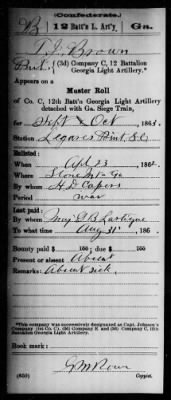 (Confederate.)
B 12 Batt'n L. Art'y. Ga.
T. J. Brown
Pvt., (3d) Company C, 12 Battalion
Georgia Light Artillery.*
Appears on a
Muster Roll
of Co. C, 12th Batt'n Georgia Light Artillery
detached with Ga. Siege Train,
for Sept & Oct, 1863.
Station Legares Point, S.C.
Enlisted:
When Apl 23, 186
Where Stone Mt Ga
By whom H. D. Capers
Period war
Last paid:
By whom Maj. G. B. Lartigue
To what time Aug 31, 186
Bounty paid $ 100; due $ 100
Present or absent Absent
Remarks: Absent sick.
*This company was successively designated as Capt. Johnson's
Company (1st Co. C), (3d) Company E and (3d) Company C, 12th
Battalion Georgia Light Artillery.
Book mark:
G M Rowe
(650) Copyist.